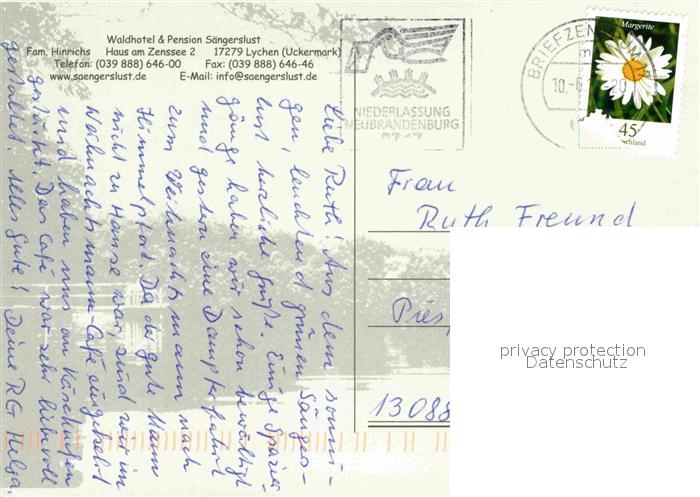 Waldhotel & Pension Sängerslust
Fam. Hinrichs Haus am Zenssee 2 17279 Lychen (Uckermark)
Telefon: (039 888) 646-00 Fax: (039 888) 646-46
www.saengerslust.de E-Mail: info@saengerslust.de
Liebe Ruth! Aus dem sonni-
gen, leuchtend grünen Sängers-
lust herzliche Grüße. Einige Spazier-
gänge haben wir schon bewältigt
und gestern eine Dampferfahrt
zum Weihnachtsmann nach
Himmelpfort. Da der gute Mann
nicht zu Hause war, sind wir im
Weihnachtsmann-Café eingekehrt
und haben uns an Käsekuchen
gestärkt. Das Café war sehr liebevoll
gestaltet. Alles Gute! Deine RG Helga.
NIEDERLASSUNG
NEUBRANDENBURG
BRIEFZEN
10.-6
20
Margerite
45
Frau
Ruth Freund
Pies
13088
privacy protection
Datenschutz